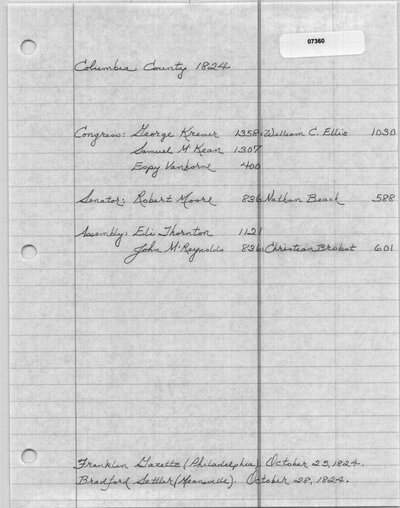 07360
Columbia County 1824
Congress: George Kremer 1358 William C. Ellis 1030
Samuel McKean 1307
Espy Vanhorne 400
Senator: Robert Moore 836 Nathan Beach 588
Assembly: Eli Thornton 1121
John McReynolds 836 Christian Brobst 601
Franklin Gazette (Philadelphia). October 23, 1824.
Bradford Settler (Meansville). October 28, 1824.